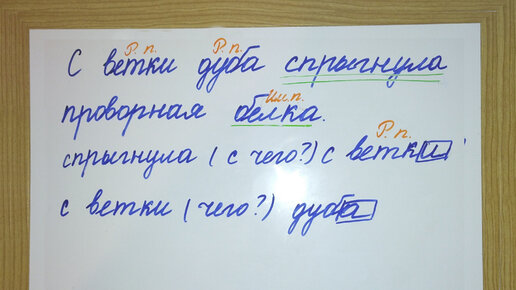 Р. п. Р. п.
С ветки дуба спрыгнула
Им. п.
проворная белка.
Р. п.
спрыгнула (с чего?) с ветки
с ветки (чего?) дуба